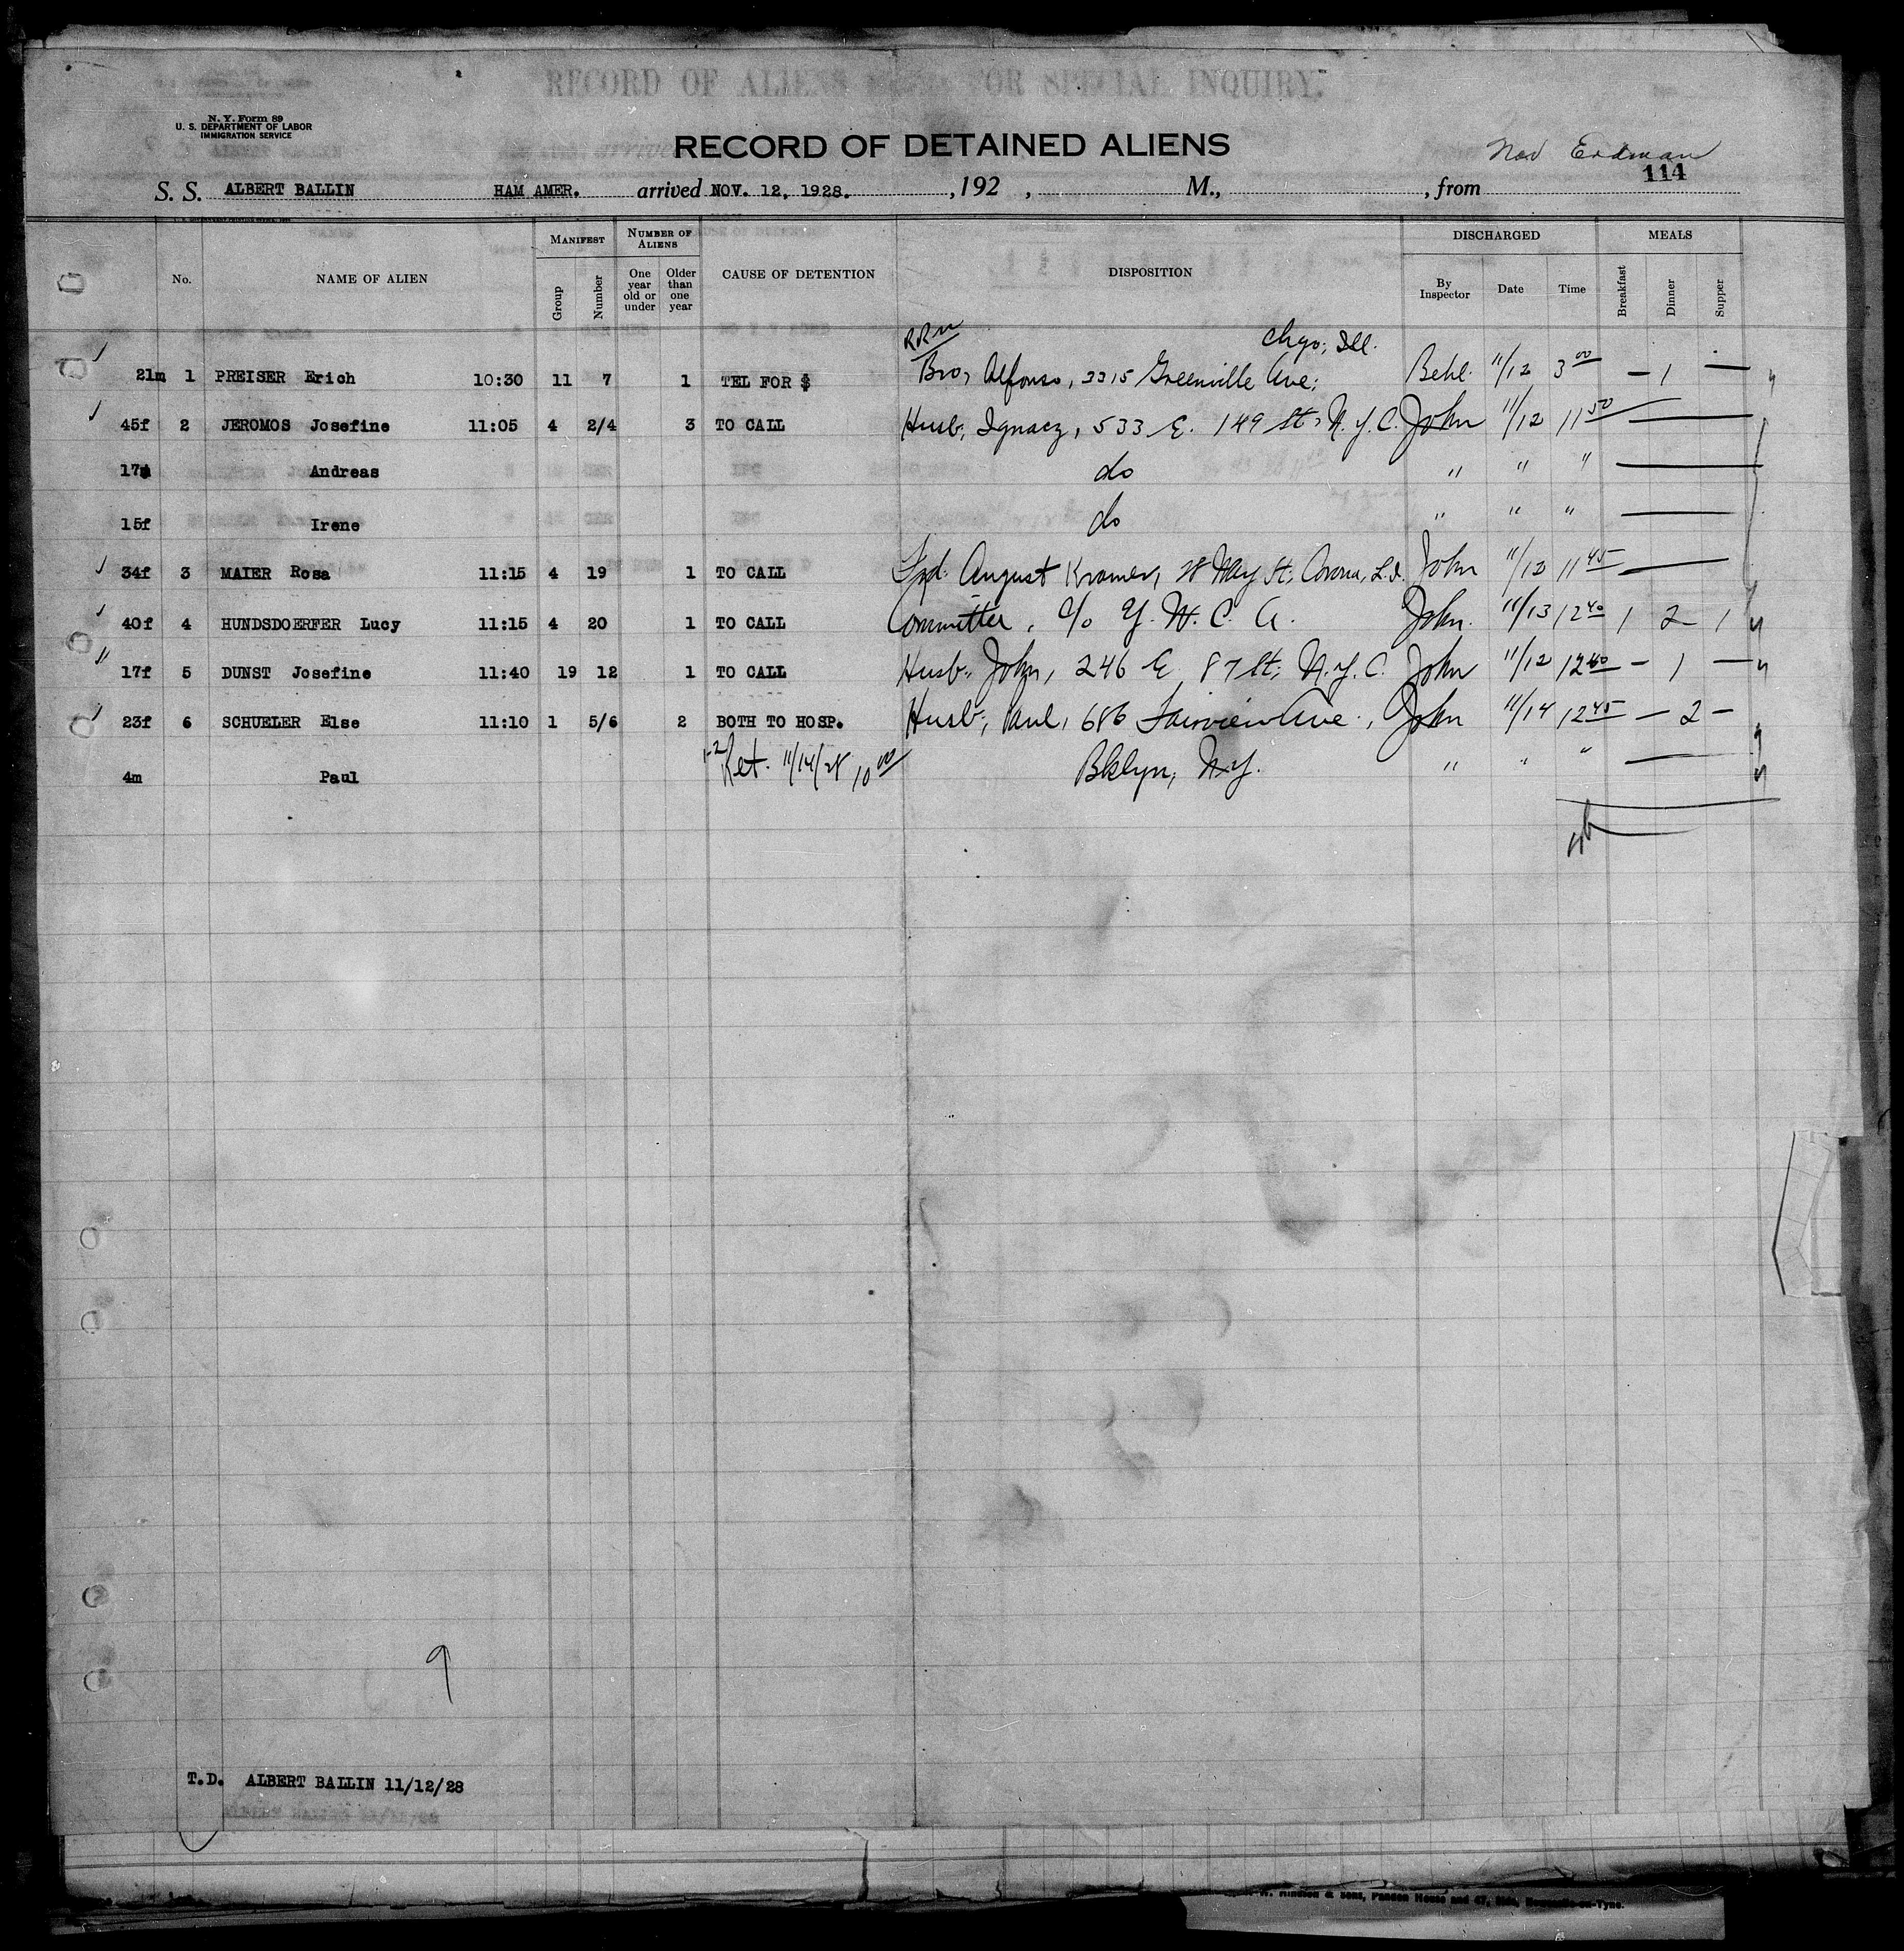 RECORD OF ALIENS FOR SPECIAL INQUIRY.
N. Y. Form 89
U. S. DEPARTMENT OF LABOR
IMMIGRATION SERVICE
RECORD OF DETAINED ALIENS
Erdman
114
S. S. ALBERT BALLIN HAM AMER. arrived NOV. 12, 1928. , 192 , M., , from
No. NAME OF ALIEN MANIFEST Group Number NUMBER OF ALIENS One year old or under Older than one year CAUSE OF DETENTION DISPOSITION DISCHARGED By Inspector Date Time MEALS Breakfast Dinner Supper
RRN Chgo; Ill.
21m 1 PREISER Erich 10:30 11 7 1 TEL FOR $ Bro, Alfonso, 2215 Greenville Ave; Behl. 11/12 3 00 — 1 —
45f 2 JEROMOS Josefine 11:05 4 2/4 3 TO CALL Husb, Ignacz, 533 E. 149 St, N.Y.C. John 11/12 11 50 —
17m Andreas do " " " —
15f Irene do " " " —
34f 3 MAIER Rosa 11:15 4 19 1 TO CALL Frd. August Kramer, 28 May St, Corona, L.I. John 11/12 11 45 —
40f 4 HUNDSDOERFER Lucy 11:15 4 20 1 TO CALL Committee, c/o Y. W. C. A. John. 11/13 12 40 1 2 1
17f 5 DUNST Josefine 11:40 19 12 1 TO CALL Husb. John, 246 E 87 St; N.Y.C. John 11/12 12 40 — 1 —
23f 6 SCHUELER Else 11:10 1 5/6 2 BOTH TO HOSP. Husb, Paul, 686 Fairview Ave., John 11/14 12 45 — 2 —
4m Paul 1-2 Ret. 11/14/28 10 00 Bklyn, N.Y. " " " —
9
T.D. ALBERT BALLIN 11/12/28